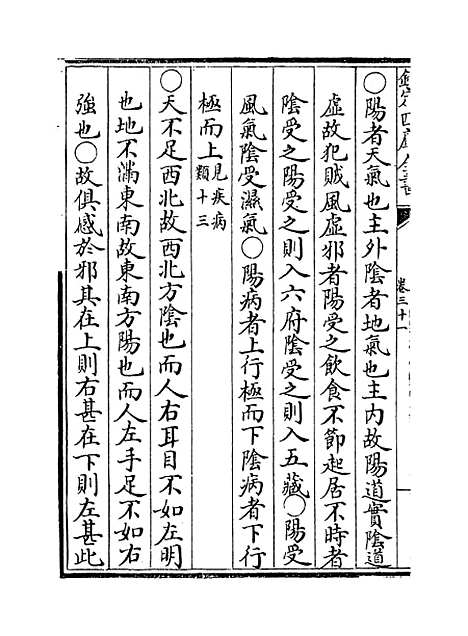 欽定四庫全書
卷三十一
○陽者天氣也主外陰者地氣也主内故陽道實陰道
虛故犯賊風虛邪者陽受之飲食不節起居不時者
陰受之陽受之則入六府陰受之則入五藏○陽受
風氣陰受濕氣○陽病者上行極而下陰病者下行
極而上見疾病類十三
○天不足西北故西北方陰也而人右耳目不如左明
也地不滿東南故東南方陽也而人左手足不如右
強也○故俱感於邪其在上則右甚在下則左甚此